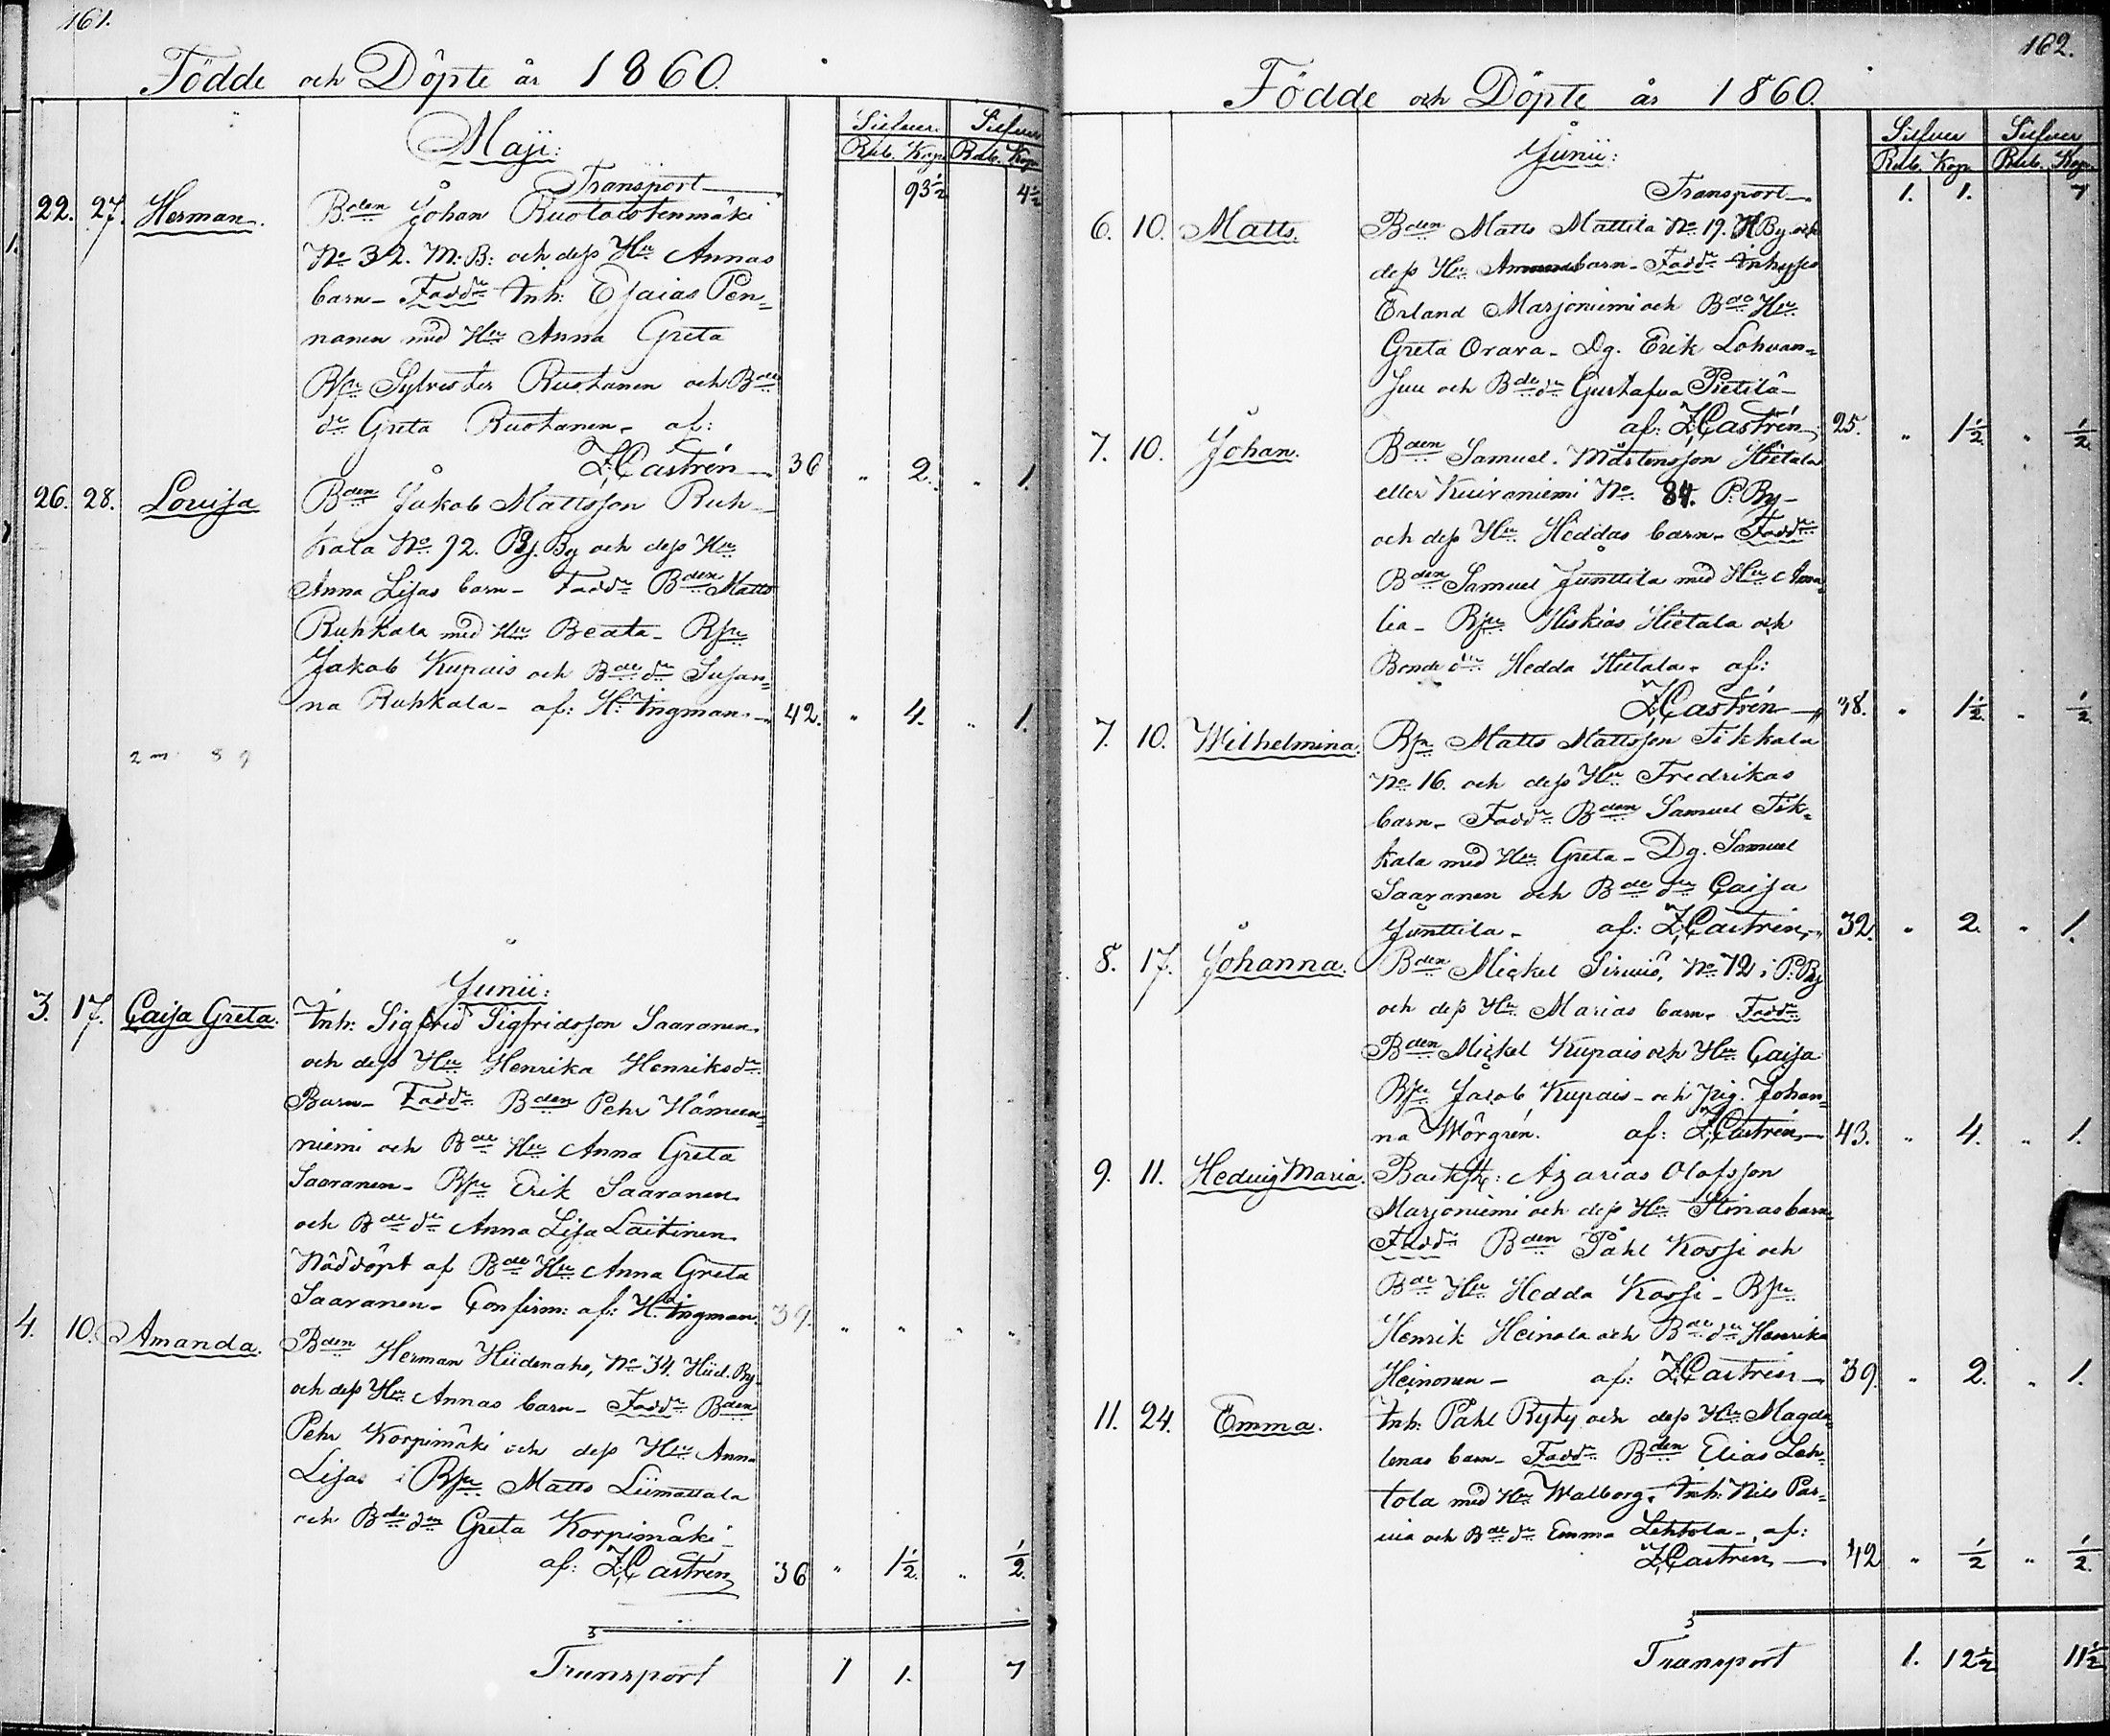 161.
Födde och Döpte år 1860.
Maji:
Silfver. Silfver
Rub. Kop. Rub. Kop.
Transport 93½ 4½
22. 27. Herman. Bden Johan Ruotoistenmäki
No 32. M. B: och dess Hu Annas
barn - Faddr Inh: Esaias Pen-
nanen med Hu Anna Greta
Bspr Sylvester Ruohanen och Bde
dr Greta Ruohanen - af:
Z,Castrén 36 " 2. " 1.
26. 28. Lovisa Bden Jakob Mattsson Ruh-
kala No 92. By och dess Hu
Anna Lisas barn - Faddr Bden Matts
Ruhkala med Hu Beata - Bspr
Jakob Kupais och Bde dr Susan-
na Ruhkala - af: H: Ingman. 42. " 4. " 1.
Junii:
3. 17. Cajsa Greta. Inh: Sigfrid Sigfridsson Saaranen.
och dess Hu Henrika Henriksdr
Barn - Faddr Bden Pehr Hämeen-
niemi och Bde Hu Anna Greta
Saaranen - Bspr Erik Saaranen
och Bde dr Anna Lisa Laitinen
Nöddöpt af Bde Hu Anna Greta
Saaranen - Confirm: af: H: Ingman. 39. " " " "
4. 10. Amanda. Bden Herman Hiidenaho, No 34. Hiid. By
och dess Hu Annas barn - Faddr Bden
Pehr Korpimäki och dess Hu Anna
Lisa Bspr Matts Liimattala
och Bde dr Greta Korpimäki -
af: Z,Castrén 36 " 1½. " ½.
Transport 1 1. 7
162.
Födde och Döpte år 1860.
Junii:
Silfver Silfver
Rub. Kop. Rub. Kop.
Transport 1. 1. 7.
6. 10. Matts. Bden Matts Mattila No 19. By och
dess Hu barn - Faddr Inhyses
Erland Marjoniemi och Bde Hu
Greta Orava - Dg. Erik Lohvan-
suu och Bde dr Gustafva Pietilä -
af: Z,Castrén 25. " 1½ " ½.
7. 10. Johan. Bden Samuel Mårtensson Hietala
eller Kuivaniemi No 84. P. By -
och dess Hu Heddas barn - Faddr
Bden Samuel Junttila med Hu Ama-
lia - Bspr Hiskias Hietala och
Bonde dr Hedda Hietala - af:
Z,Castrén 38. " 1½. " ½.
7. 10. Wilhelmina. Bspr Matts Mattsson Tikkala
No 16. och dess Hu Fredrikas
barn - Faddr Bden Samuel Tik-
kala med Hu Greta - Dg. Samuel
Saaranen och Bde dr Cajsa
Junttila - af: Z,Castrén, 32. " 2. " 1.
8. 17. Johanna. Bden Mickel Sirviö, No 72 i P. By
och dess Hu Marias barn - Faddr
Bden Mickel Kupais och Hu Cajsa
Bspr Jacob Kupais - och pig. Johan-
na Wörgrén. af: Z,Castrén, 43. " 4. " 1.
9. 11. Hedvig Maria. Azarias Olofsson
Marjoniemi och dess Hu Stinas barn -
Faddr Bden Påhl Kossi och
Bde Hu Hedda Kossi - Bspr
Henrik Heinola och Bde dr Henrika
Heinonen - af: Z,Castrén - 39. " 2. " 1.
11. 24. Emma. Inh: Påhl Ryty och dess Hu Magda-
lenas barn - Faddr Bden Elias Leh-
tola med Hu Walborg. Inh: Nils Par-
via och Bde dr Emma Lehtola - af:
Z,Castrén, 42 " ½ " ½.
Transport 1. 12½ 11½